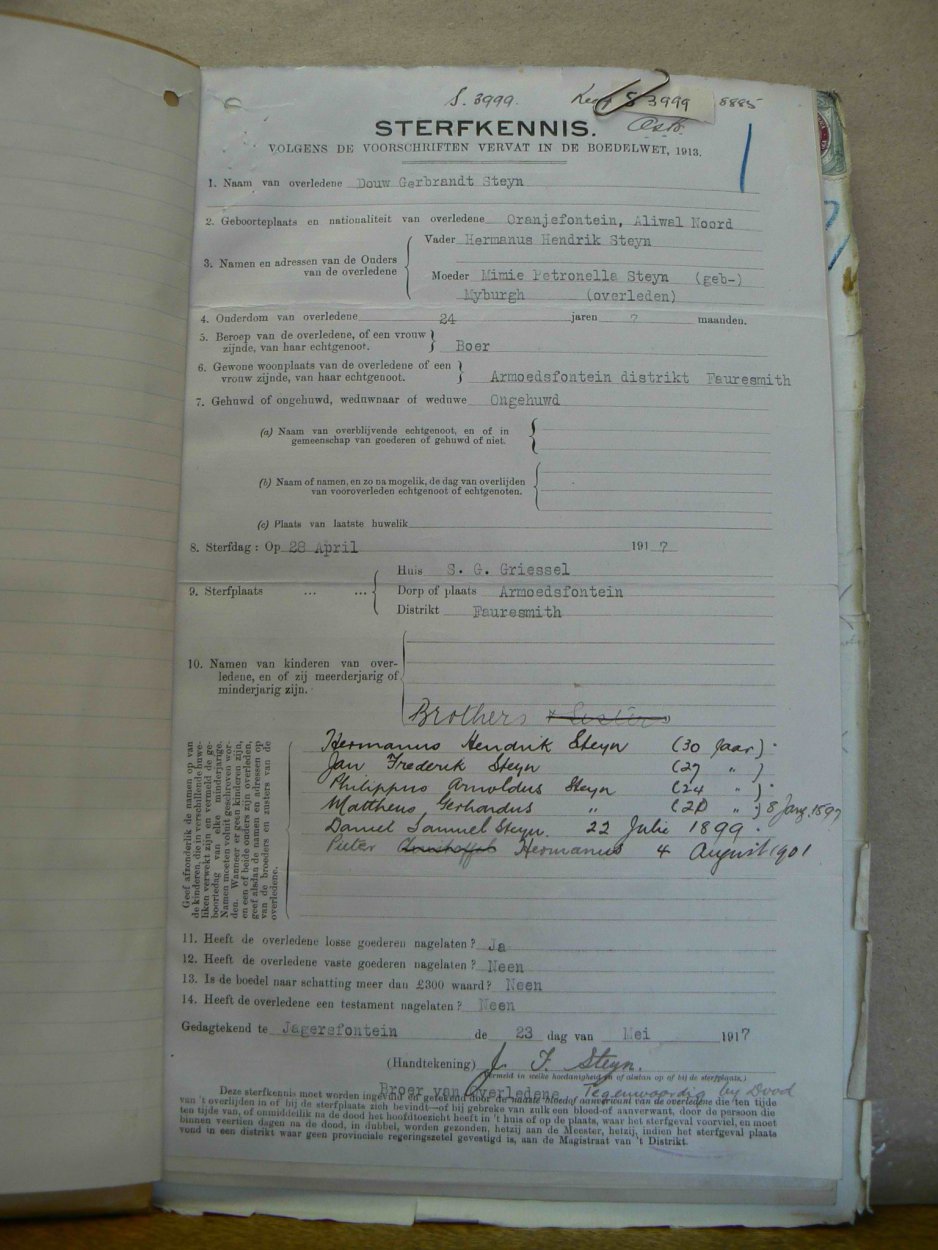 S. 3999. S 3999 8885
STERFKENNIS.
VOLGENS DE VOORSCHRIFTEN VERVAT IN DE BOEDELWET, 1913.
1. Naam van overledene Douw Gerbrandt Steyn
2. Geboorteplaats en nationaliteit van overledene Oranjefontein, Aliwal Noord
3. Namen en adressen van de Ouders van de overledene
Vader Hermanus Hendrik Steyn
Moeder Mimie Petronella Steyn (geb-)
Myburgh (overleden)
4. Ouderdom van overledene 24 jaren ? maanden.
5. Beroep van de overledene, of een vrouw
zijnde, van haar echtgenoot. Boer
6. Gewone woonplaats van de overledene of een
vrouw zijnde, van haar echtgenoot. Armoedsfontein distrikt Fauresmith
7. Gehuwd of ongehuwd, weduwnaar of weduwe Ongehuwd
(a) Naam van overblijvende echtgenoot, en of in
gemeenschap van goederen of gehuwd of niet.
(b) Naam of namen, en zo na mogelik, de dag van overlijden
van vooroverleden echtgenoot of echtgenoten.
(c) Plaats van laatste huwelik
8. Sterfdag : Op 28 April 1917
9. Sterfplaats ... ...
Huis S. G. Griessel
Dorp of plaats Armoedsfontein
Distrikt Fauresmith
10. Namen van kinderen van over-
ledene, en of zij meerderjarig of
minderjarig zijn.
Brothers & Sisters
Hermanus Hendrik Steyn (30 Jaar)
Jan Frederik Steyn (27 " )
Philippus Arnoldus Steyn (24 " )
Mattheus Gerhardus " (20 " ) 8 Jany. 1897
Daniel Samuel Steyn. 22 Julie 1899
Pieter Hermanus 4 August 1901
Geef afzonderlik de namen op van
de kinderen, die in verschillende huwe-
liken verwekt zijn en vermeld de ge-
boortedag van elke minderjarige.
Namen moeten voluit geschreven wor-
den. Wanneer er geen kinderen zijn,
en een of beide ouders zijn overleden,
geef alsdan de namen en adressen op
van de broeders en zusters van de
overledene.
11. Heeft de overledene losse goederen nagelaten? Ja
12. Heeft de overledene vaste goederen nagelaten? Neen
13. Is de boedel naar schatting meer dan £300 waard? Neen
14. Heeft de overledene een testament nagelaten? Neen
Gedagtekend te Jagersfontein de 23 dag van Mei 1917
(Handtekening) J. F. Steyn.
(Vermeld in welke hoedanigheid en of alstan op of bij de sterfplaats.)
Broer van Overledene Tegenwoordig by Dood
Deze sterfkennis moet worden ingevuld en getekend door de naaste bloedof aanverwant van de overledene die ten tijde
van 't overlijden in of bij de sterfplaats zich bevindt—of bij gebreke van zulk een bloed-of aanverwant, door de persoon die
ten tijde van, of onmiddelik na de dood het hoofdtoezicht heeft in 't huis of op de plaats, waar het sterfgeval voorviel, en moet
binnen veertien dagen na de dood, in dubbel, worden gezonden, hetzij aan de Meester, hetzij, indien het sterfgeval plaats
vond in een distrikt waar geen provinciale regeringszetel gevestigd is, aan de Magistraat van 't Distrikt.